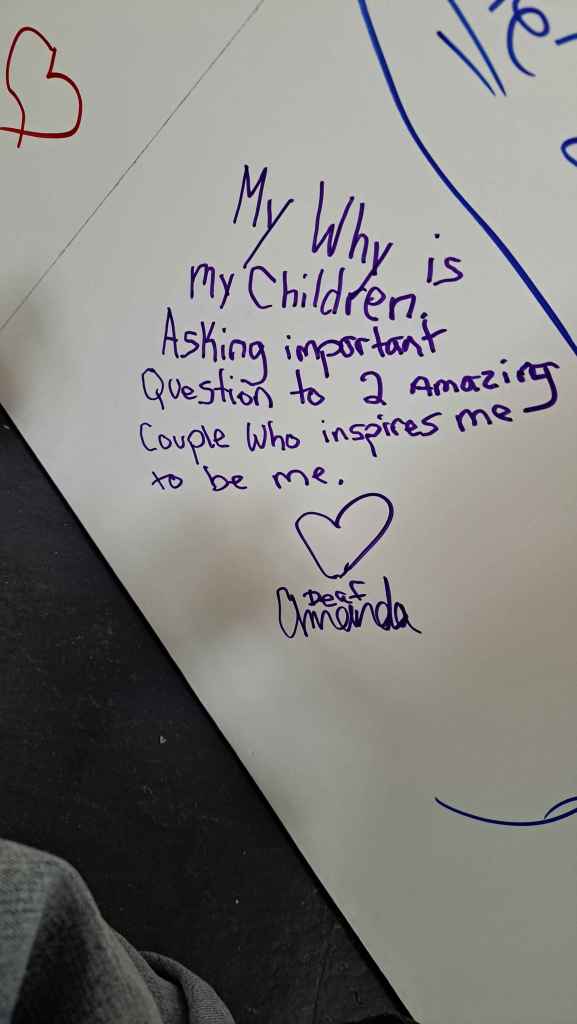 My Why is
my Children.
Asking important
Question to 2 Amazing
Couple Who inspires me
to be me.
Deaf
Amanda